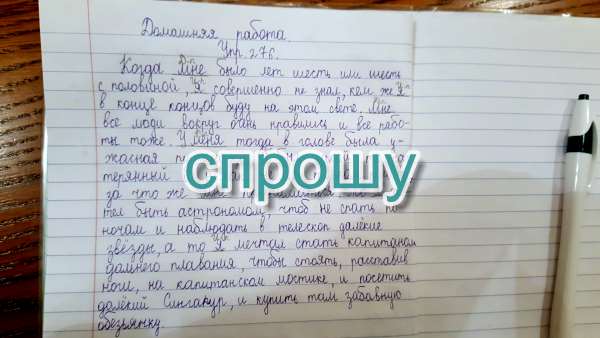 Домашняя работа.
Упр. 276.
Когда мне было лет шесть или шесть
с половиной, я совершенно не знал, кем же я
в конце концов буду на этом свете. Мне
все люди вокруг нравились и все рабо-
ты тоже. У меня тогда в голове была у-
жасная
терянный
спрошу
за что же мне
тел быть астрономом, чтоб не спать по
ночам и наблюдать в телескоп далёкие
звёзды, а то я мечтал стать капитаном
дальнего плавания, чтобы стоять, расставив
ноги, на капитанском мостике, и посетить
далёкий Сингапур, и купить там забавную
обезьянку.